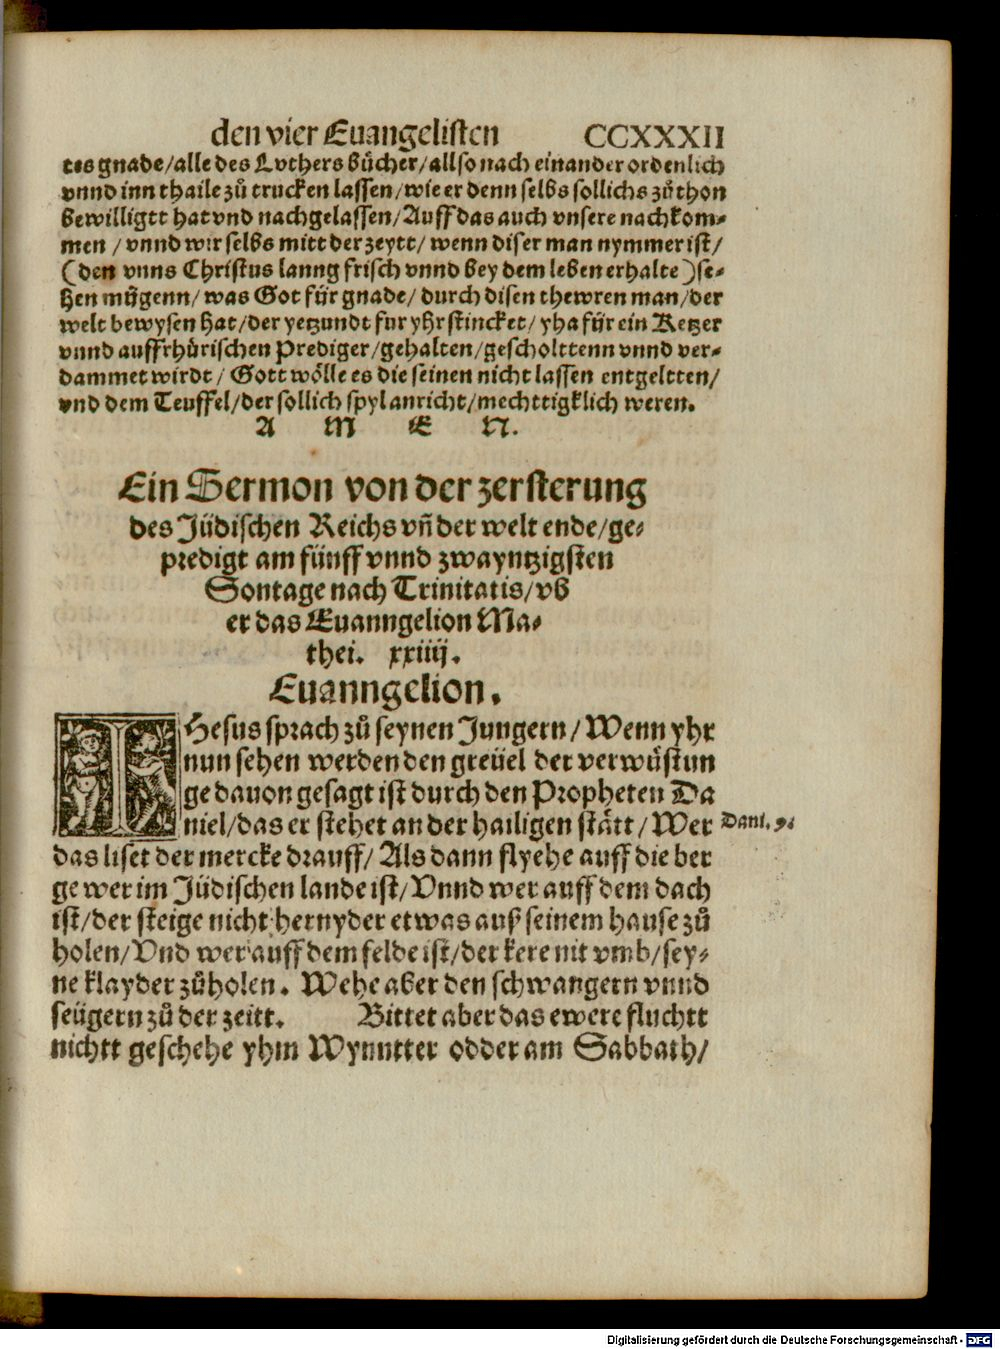 den vier Euangelisten CCXXXII
tes gnade/alle des Lvthers bücher/allso nach einander ordenlich
vnnd inn thaile zů trucken lassen/wie er denn selbs sollichs zů thon
bewilligtt hat vnd nachgelassen/Auff das auch vnsere nachkom-
men / vnnd wir selbs mitt der zeytt/ wenn diser man nymmer ist/
(den vnns Christus lanng frisch vnnd bey dem leben erhalte)se-
hen mügenn/was Got für gnade/ durch disen thewren man/der
welt bewysen hat/der yetzundt fur yhr stincket/ yha für ein Ketzer
vnnd auffrhürischen Prediger/gehalten/gescholttenn vnnd ver-
dammet wirdt/ Gott wölle es die seinen nicht lassen entgeltten/
vnd dem Teuffel/der sollich spyl anricht/mechttigklich weren.
A M E N.
Ein Sermon von der zersterung
des Jüdischen Reichs vñ der welt ende/ge-
predigt am fünff vnnd zwayntzigsten
Sontage nach Trinitatis/vb
er das Euanngelion Ma-
thei. xxiiij.
Euanngelion.
IHesus sprach zů seynen Jungern/Wenn yhr
nun sehen werden den greüel der verwüstun
ge dauon gesagt ist durch den Propheten Da
niel/das er stehet an der hailigen stätt/Wer Dani. 9.
das liset der mercke drauff/ Als dann flyehe auff die ber
ge wer im Jüdischen lande ist/Vnnd wer auff dem dach
ist/der steige nicht hernyder etwas auß seinem hause zů
holen/Vnd wer auff dem felde ist/der kere nit vmb/sey-
ne klayder zů holen. Wehe aber den schwangern vnnd
seügern zů der zeitt. Bittet aber das ewere fluchtt
nichtt geschehe yhm Wynntter odder am Sabbath/
Digitalisierung gefördert durch die Deutsche Forschungsgemeinschaft - DFG